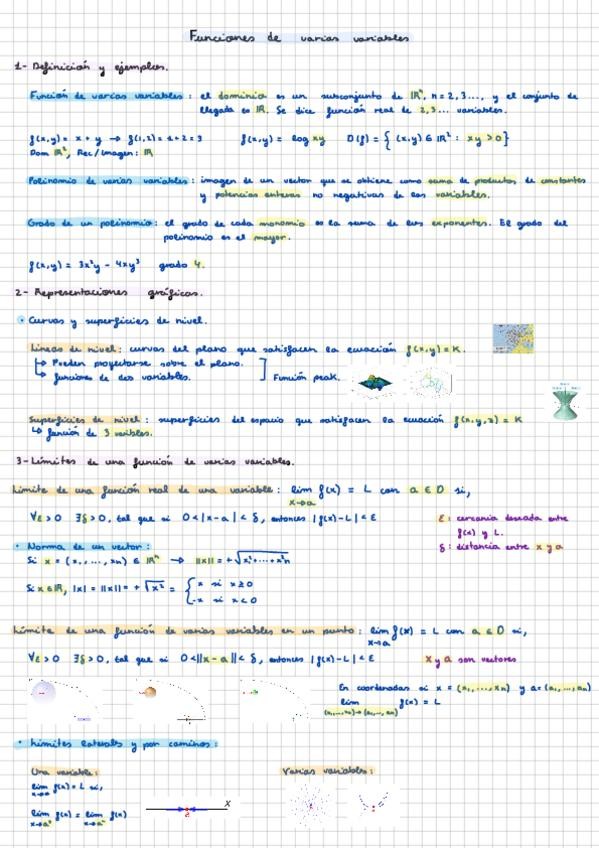 Funciones de varias variables
1- Definición y ejemplos.
Función de varias variables: el dominio es un subconjunto de ℝⁿ, n = 2, 3..., y el conjunto de
llegada es ℝ. Se dice función real de 2, 3... variables.
f(x,y) = x + y → f(1,2) = 1 + 2 = 3    f(x,y) = log xy    D(f) = { (x,y) ∈ ℝ² : xy > 0 }
Dom ℝ², Rec/Imagen: ℝ
Polinomio de varias variables: imagen de un vector que se obtiene como suma de productos de constantes
y potencias enteras no negativas de las variables.
Grado de un polinomio: el grado de cada monomio es la suma de sus exponentes. El grado del
polinomio es el mayor.
f(x,y) = 3x²y - 4xy³    grado 4.
2- Representaciones gráficas.
• Curvas y superficies de nivel.
Líneas de nivel: curvas del plano que satisfacen la ecuación f(x,y) = K.
↳ Pueden proyectarse sobre el plano.
↳ funciones de dos variables.    Función peak.
Superficies de nivel: superficies del espacio que satisfacen la ecuación f(x,y,z) = K
↳ función de 3 varibles.
3- Límites de una función de varias variables.
Límite de una función real de una variable: lím f(x) = L con a ∈ D si,
x→a
∀ε > 0 ∃δ > 0, tal que si 0 < |x - a| < δ, entonces |f(x) - L| < ε    ε: cercanía deseada entre
f(x) y L.
δ: distancia entre x y a
• Norma de un vector:
Si x = (x₁, ..., xn) ∈ ℝⁿ → ||x|| = +√x₁² + ... + x²n
Si x ∈ ℝ, |x| = ||x|| = +√x² = { x si x ≥ 0
-x si x < 0
Límite de una función de varias variables en un punto: lím f(x) = L con a ∈ D si,
x→a
∀ε > 0 ∃δ > 0, tal que si 0 < ||x - a|| < δ, entonces |f(x) - L| < ε    x y a son vectores
En coordenadas si x = (x₁, ..., xn) y a = (a₁, ..., an)
lím f(x) = L
(x₁, ..., xn) → (a₁, ..., an)
• Límites laterales y por caminos:
Una variable:    Varias variables:
lím f(x) = L si,
x→a
lím f(x) = lím f(x)
x→a⁺ x→a⁻
X
a